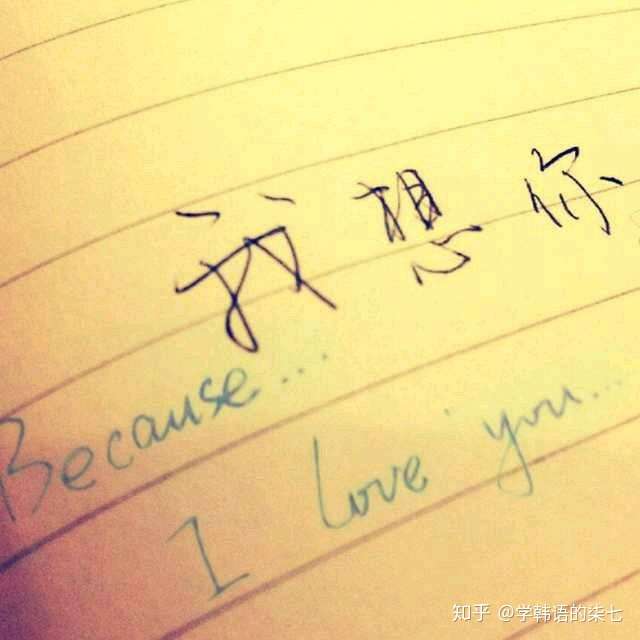 我想你
Because...
I love you...
知乎 @学韩语的柒七